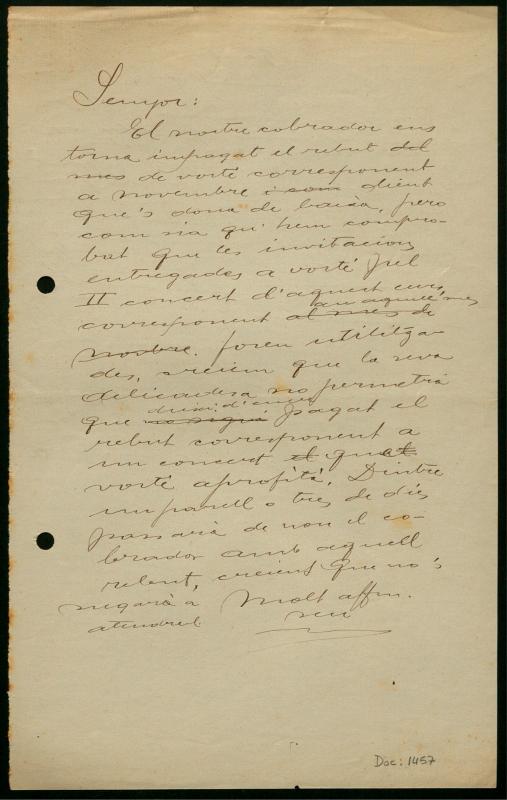 Senyor:
El nostre cobrador ens
torna impagat el rebut del
mes de vosté corresponent
a novembre i com dient
que's dona de baixa, pero
com sia qu' hem compro-
bat que les invitacions
entregades a vosté pel
II concert d'aquest curs,
an aquell mes
corresponent al mes de
nostre. foren utilitza-
des, creiem que la seva
delicadesa no permetrá
deixi d'esser
que no sigui pagat el
rebut corresponent a
un concert el qual
vosté aprofitá. Dintre
un parell o tres de dies
passará de nou el co-
brador amb aquell
rebut, creient que no's
negará a
atendrel.
Molt affm.
seu
Doc: 1457